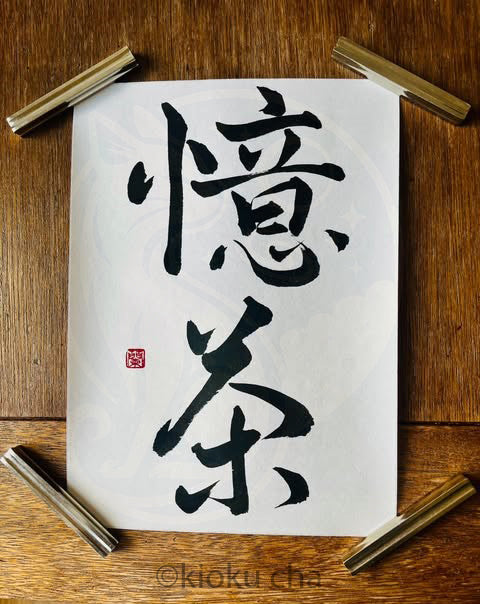 憶
茶
©kioku cha